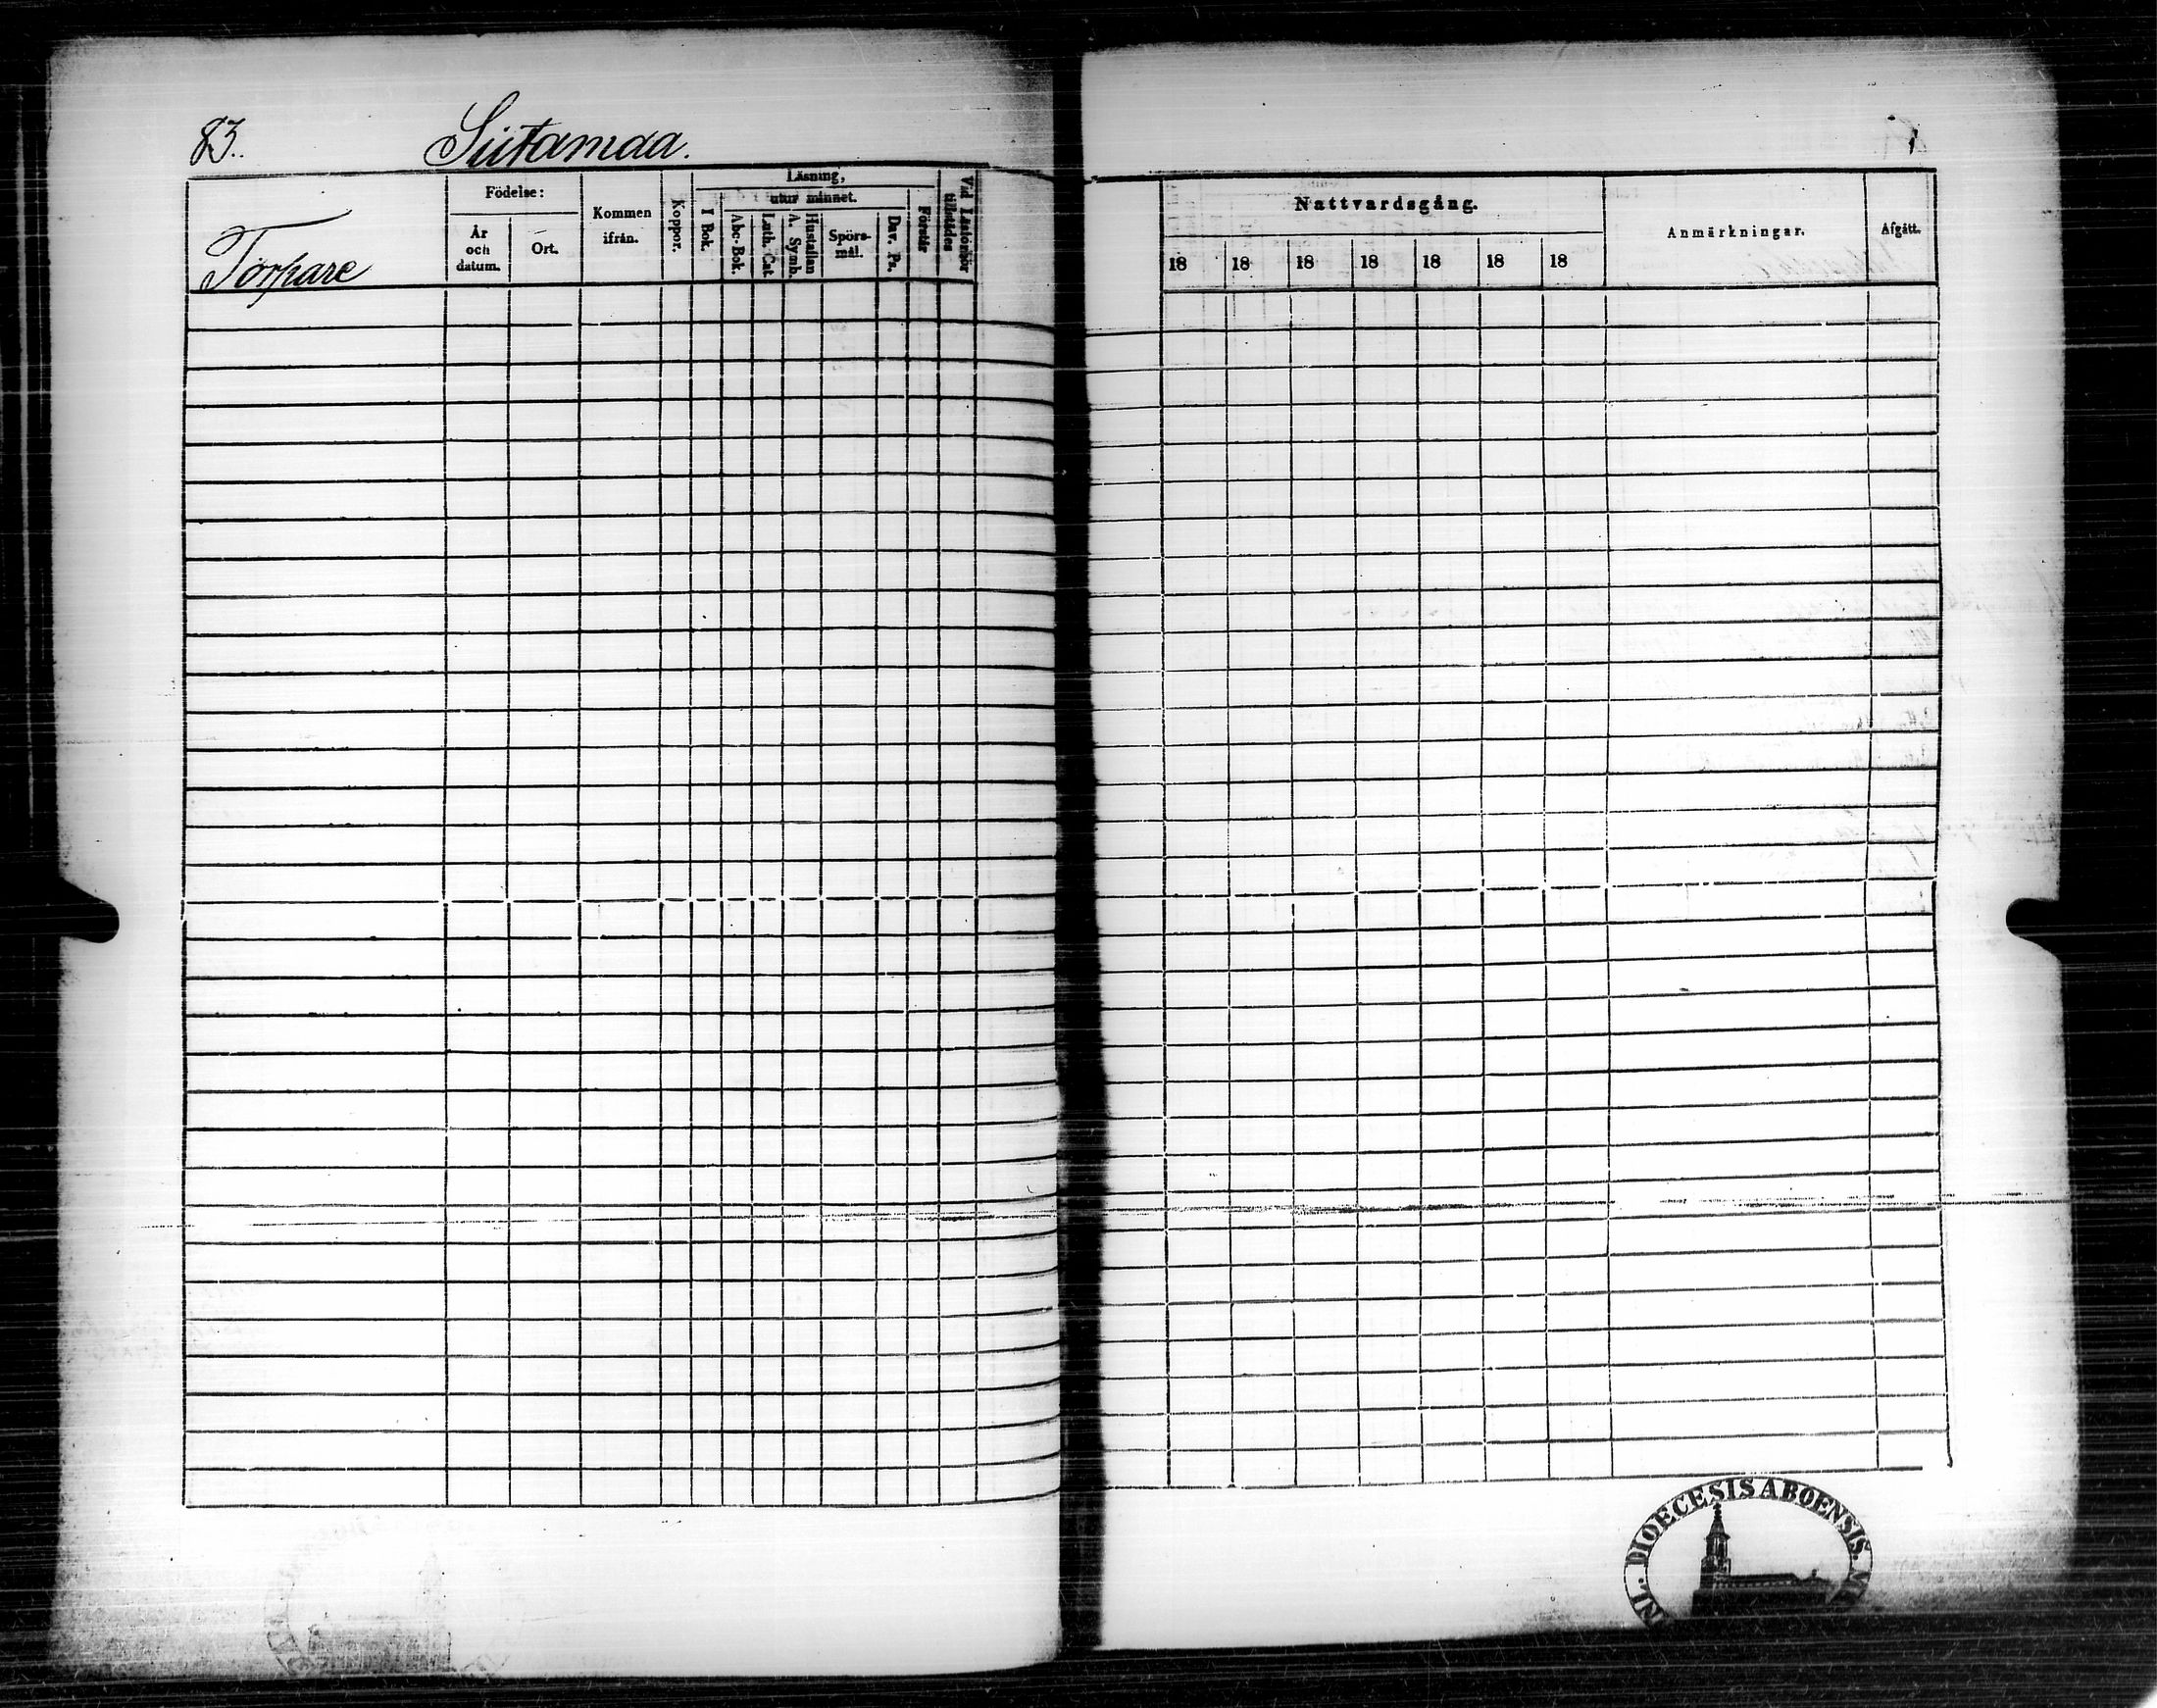 83.
Siitamaa.
Torpare
Födelse:
År
och
datum.
Ort.
Kommen
ifrån.
Koppor.
Läsning,
utur minnet.
I Bok.
Abc-Bok.
Luth. Cat.
A. Symb.
Hustaflan
Spörs-
mål.
Dav. Ps.
Förstår
Vid Läsförhör
tillstädes
Nattvardsgång.
18 18 18 18 18 18 18
Anmärkningar.
Afgått.
DIOECESIS ABOENSIS.